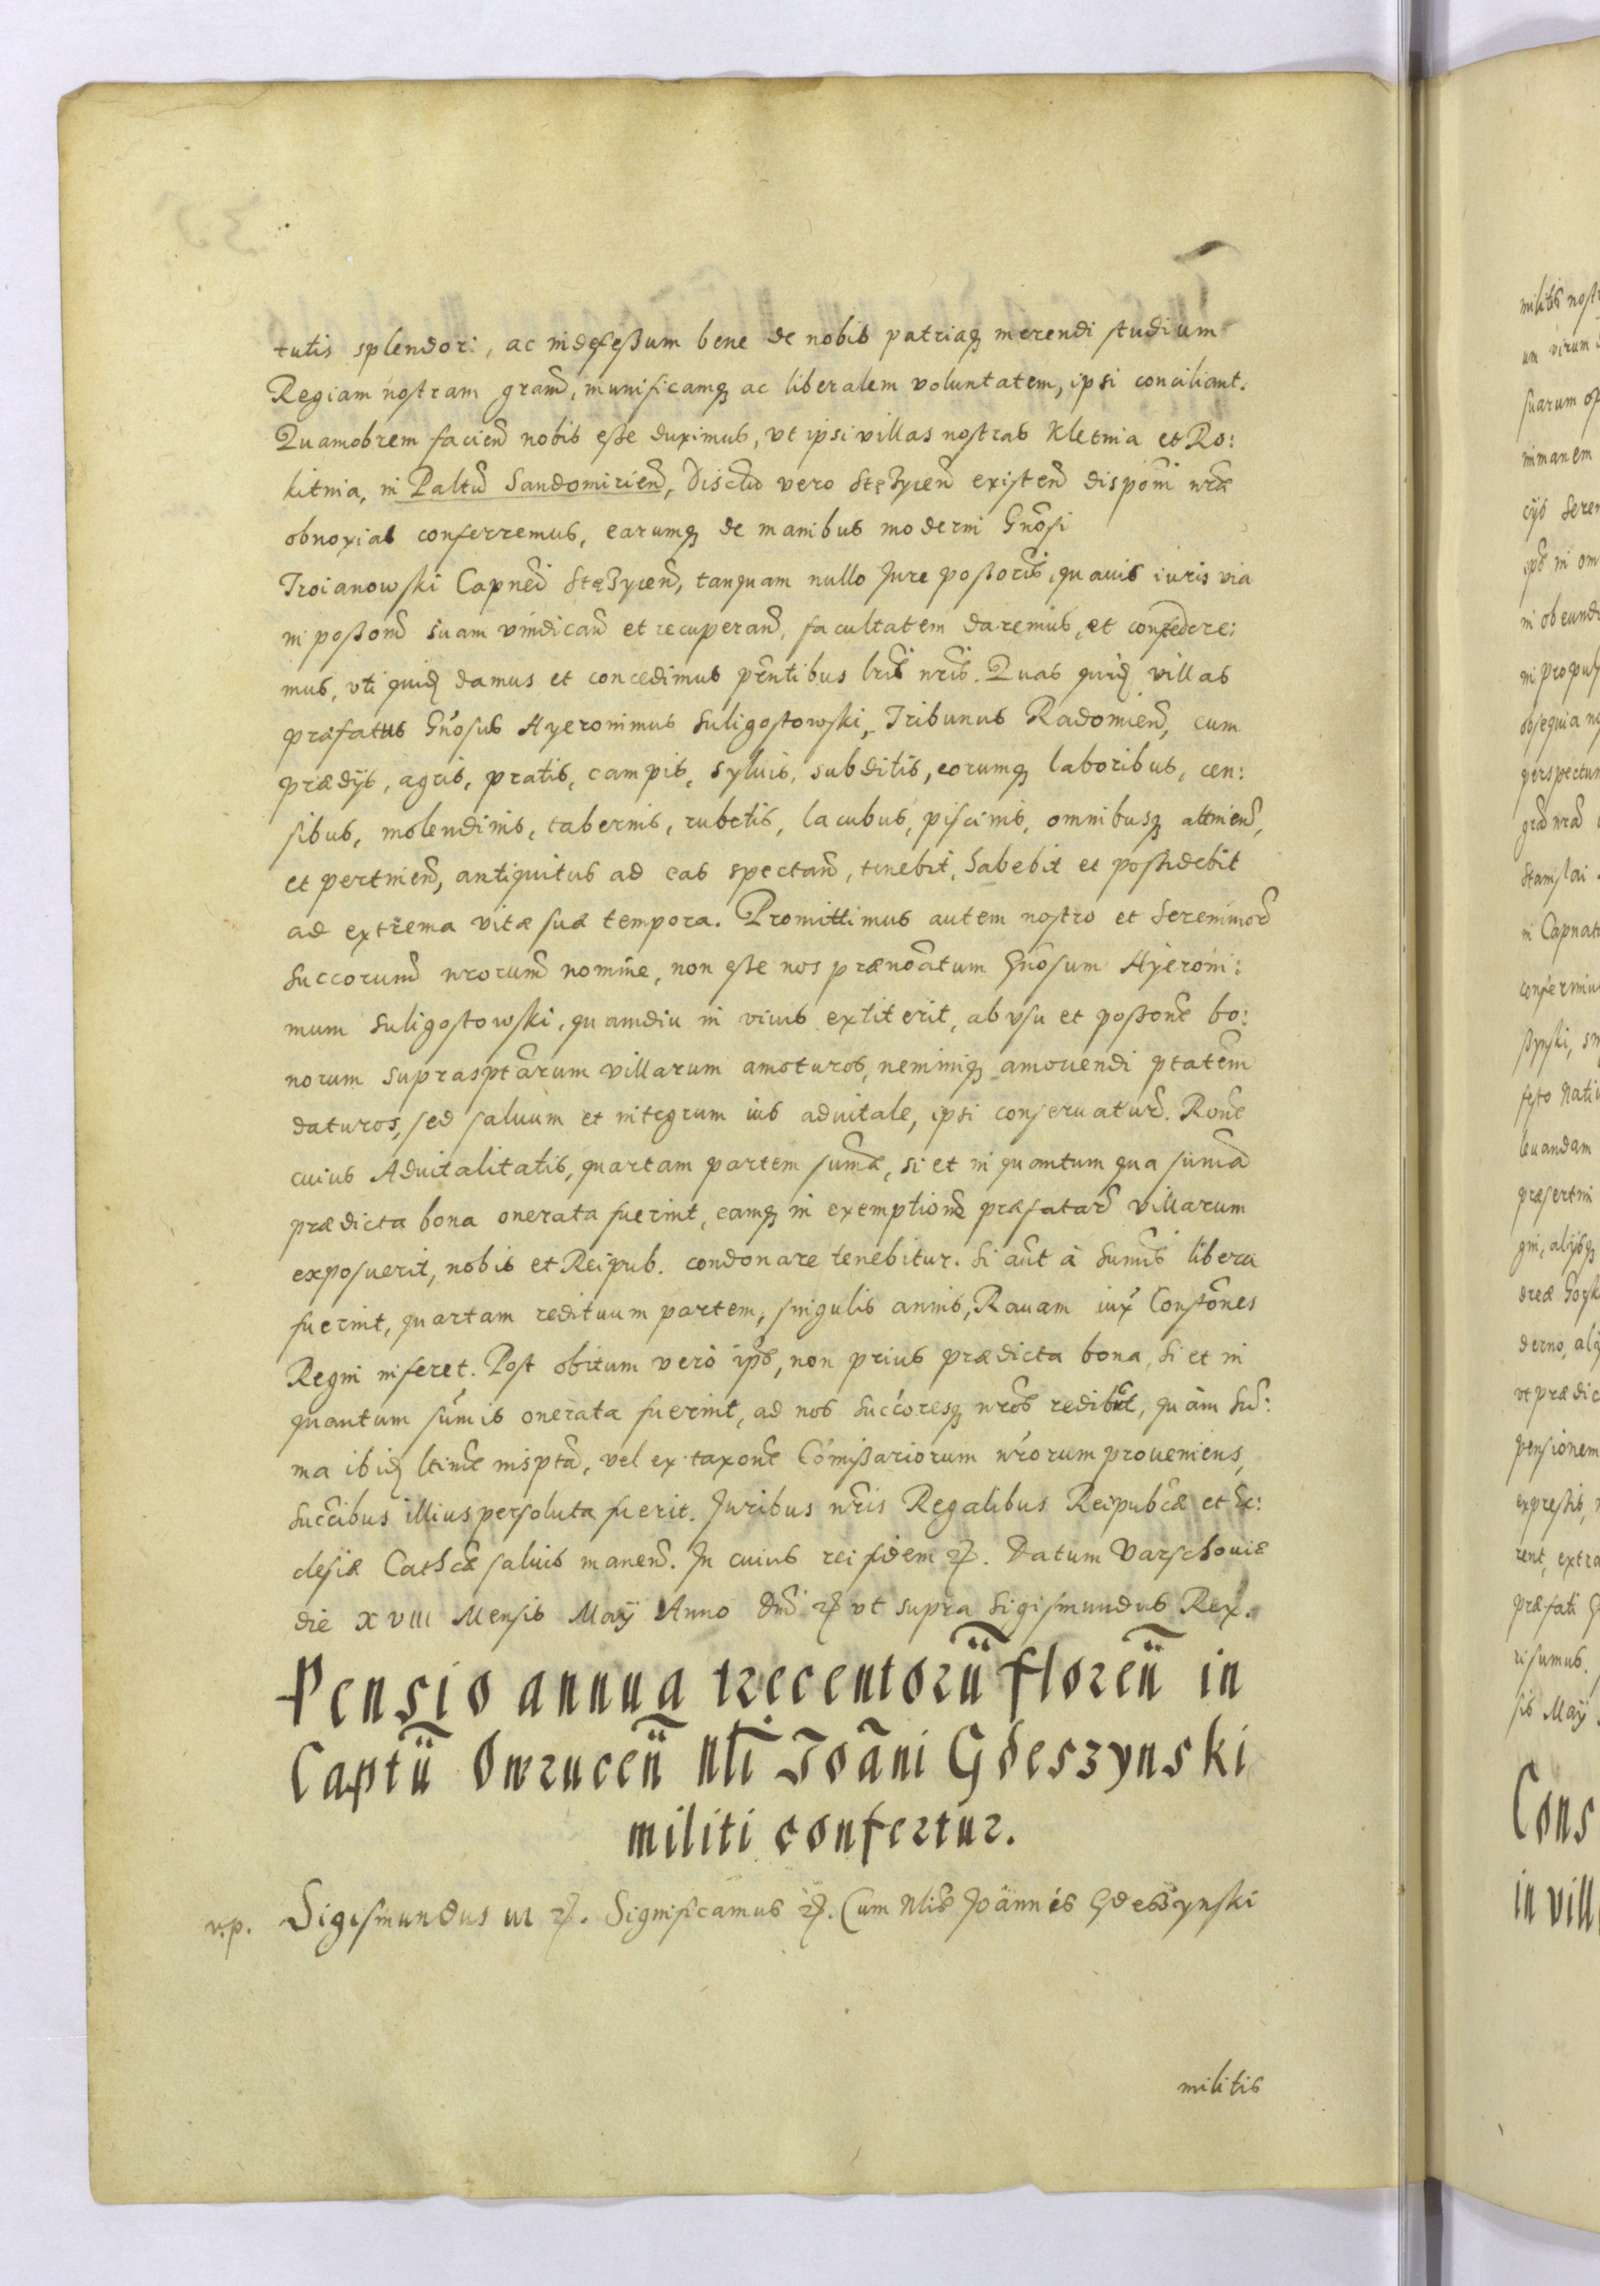 tutis splendor:, ac indefeßum bene de nobis patriaq3 merendi studium
Regiam nostram gram̃, munificamq3 ac liberalem voluntatem, ipsi conciliant.
Quamobrem faciend̃ nobis eße duximus, vt ipsi villas nostras Kletnia et Ro:
kitnia, in Paltũ Sandomirien̄, Disctũ vero Stęzycen̄ existen̄ disponi nr̃æ
obnoxias conferremus, earumq3 de manibus moderni Gnosi
Troianowski Capnei Stęzycen̄, tanquam nullo Jure poßoris, quauis iuris via
in poßonẽ suam vindican̄ et recuperan̄, facultatem daremus, et concedere:
mus, vti quid̃ damus et concedimus pñtibus lris nris. Quas quid̃ villas
præfatus Gnosus Hyeronimus Suligostowski, Tribunus Radomien̄, cum
prædijs, agris, pratis, campis, syluis, subditis, eorumq3 laboribus, cen:
sibus, molendinis, tabernis, rubetis, lacubus, piscinis, omnibusq3 attinen̄,
et pertinen̄, antiquitus ad eas spectan̄, tenebit, habebit et poßidebit
ad extrema vitæ suæ tempora. Promittimus autem nostro et Serenimor̄
Succorum̄ nrorum̄ nomine, non eße nos prænoatum Gnosum Hyeroni:
mum Suligostowski, quamdiu in viuis extiterit, ab vsu et poßone bo:
norum suprasptarum villarum amoturos, neminiq3 amouendi ptatem
daturos, sed saluum et integrum ius aduitale, ipsi conseruatur̄. Rone
cuius Aduitalitatis, quartam partem sum̄æ, si et in quantum qua sum̄a
prædicta bona onerata fuerint, eamq3 in exemptione præfatar̄ villarum
exposuerit, nobis et Reipub. condonare tenebitur. Si aut̃ à sum̄is libera
fuerint, quartam redituum partem, singulis annis, Rauam iux̃ Constõnes
Regni inferet. Post obitum verò ips̃, non prius prædicta bona, si et in
quantum sum̄is onerata fuerint, ad nos Succoresq3 nros redibũt, quàm sum̄:
ma ibid̃ ltime inspta, vel ex taxone Com̄ißariorum nrorum proueniens,
Succibus illius persoluta fuerit. Juribus nris Regalibus Reipubcæ et Ec:
clesiæ Cathcæ saluis manen̄. In cuius rei fidem ꝛc. Datum Varschouiæ
die XVIII Mensis Maij Anno Dnĩ ꝛc vt supra Sigismundus Rex.
Pensio annua trecentorũ floren̄ in
Captũ Owrucen̄ Nli Joãni Gdeszynski
militi confertur.
v.p. Sigismundus III ꝛc. Significamus ꝛc. Cum Nlis Joannis Gdeszynski
militis